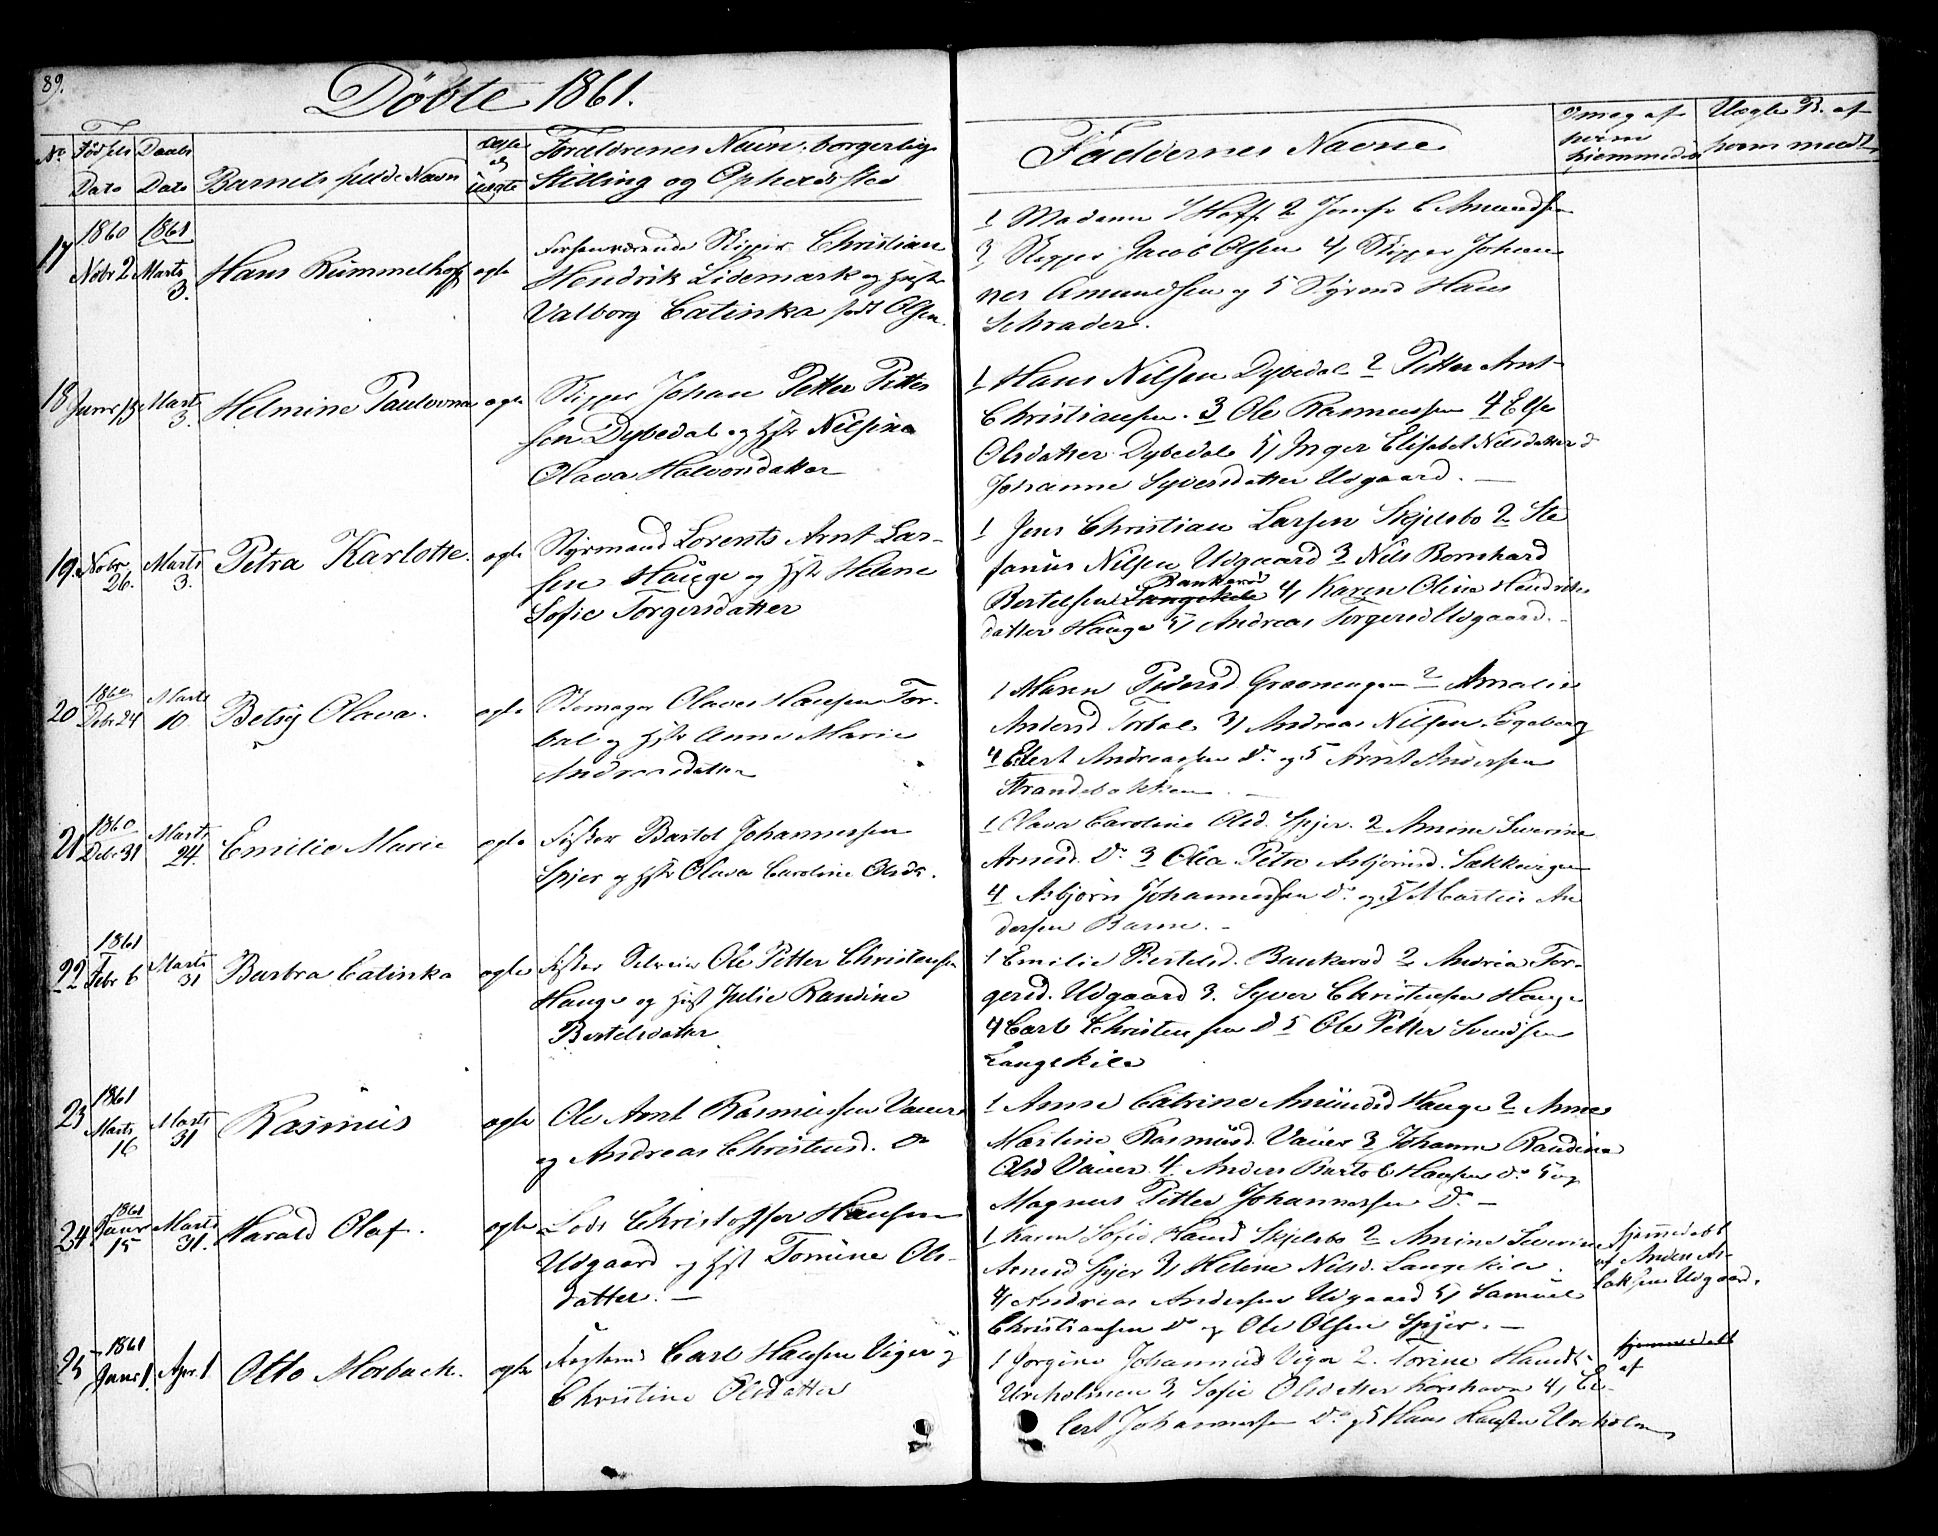 89.
Döbte 1861.
No Födsels Dato Daabs Dato Barnets fulde Navn ægte og uægte Forældrenes Navn, borgerlige Stilling og Opholdssted
Faddernes Navne
hjemmedøbt
Uægte B. af
17 1860 Nobr 2 1861 Marts 3. Hans Rummelhoff ægte
Skipper Christian
Hendrik Lidemark og Hustr
Valborg Catinka född Olsen.
1 Madame Hoff 2 Jomfr C Amundsen
3 Skipper Jacob Olsen 4, Skipper Johan
nes Amundsen og 5 Styrmd Hans
Schrader.
18 Janr 19 Marts 3. Helmine Paulovna ægte
Skipper Johan Petter Petter
sen Dybedal og Hstr Nilsine
Olava Halvorsdatter
1 Hans Nilsen Dybedal 2 Petter Arnt
Christiansen. 3 Ole Rasmussen 4 Else
Olsdatter Dybedal 5, Inger Elisabet Nilsdatter d
Johanne Syversdatter Udgaard. —
19. Nobr 26. Marts 3. Petra Karlotte. ægte
Styrmand Lorents Arnt Lar-
sen Hauge og Hstr Helene
Sofie Torgersdatter
1 Jens Christian Larsen Skjelsbo 2 Ste
fanus Nilsen Udgaard 3 Nils Bernhard
Bankerød
Bertelsen Langekile 4, Karen Oline Hendriks
datter Hauge 5, Andreas Torgersd Udgaard. -
20 1860 Debr 24 Marts 10. Betsy Olava. ægte
Skomager Olaves Hansen Tor-
bal og Hstr Anne Marie
Andreasdatter
1 Maren Pedersd. Graanengen 2 Amalie
Andersd Torbal 3, Andreas Nilsen Egeberg
4 Edert Andreassen Do og 5 Arnt Andersen
Strandebakken. —
21 1860 Debr 31 Marts 24. Emilie Marie ægte
Fisker Bartol Johannessen
Spjer og Hstr Olava Caroline Olsdr.
1 Olava Caroline Olsd. Spjer. 2 Amine Severine
Arnesd. Do 3 Olea Petra Asbjörnsd. Løkkevigen
4 Asbjörn Johannessen Do og 5, Martin An
dersen Barm. -
22 1861 Febr 6 Marts 31 Barbra Catinka ægte
Fisker Selveier Ole Petter Christensen
Hauge og Hust Julie Randine
Bertelsdatter
1 Emilie Bertelsd. Bankerød 2 Andrea Tor-
gersd. Udgaard 3. Syver Christensen Hauge
4 Carl Christensen Do 5 Ole Petter Svendsen
Langekile
23 1861 Marts 16 Marts 31 Rasmus ægte
Ole Arnt Rasmussen Vauer
og Andrea Christensd. Do
1 Anne Catrine Amundsd Hauge 2 Anne
Martine Rasmusd. Vauer 3 Johanne Randine
Olsd Vauer 4. Anders Barto C Hansen Do 5 og
Magnus Petter Johannessen Do —
24 1861 Janr 15 Marts 31. Harald Olaf. ægte
Lods Christoffer Hansen
Udgaard og Hst Tomine Ols-
datter. —
1 Karen Sofie Hansd Skjelsbo 2 Amine Severine
Arnesd Spjer 3, Helene Nilsd. Langekile.
4, Andreas Andersen Udgaard 5, Samuel
Christiansen Do og Ole Olsen Spjer. —
hjemmedøbt
af Anders As-
laksen Udgaard.
25 1861 Janr 1. Apr. 1. Otto Morback. ægte
Carl Hansen Viger og
Christine Olsdatter
1 Jorgine Johannesd Viger 2. Torine Hansd.
Ureholmen 3, Sofie Olsdatter Korshavn 4, El-
lert Johannessen Do og 5 Hans Hansen Ureholm
hjemmedøbt
af